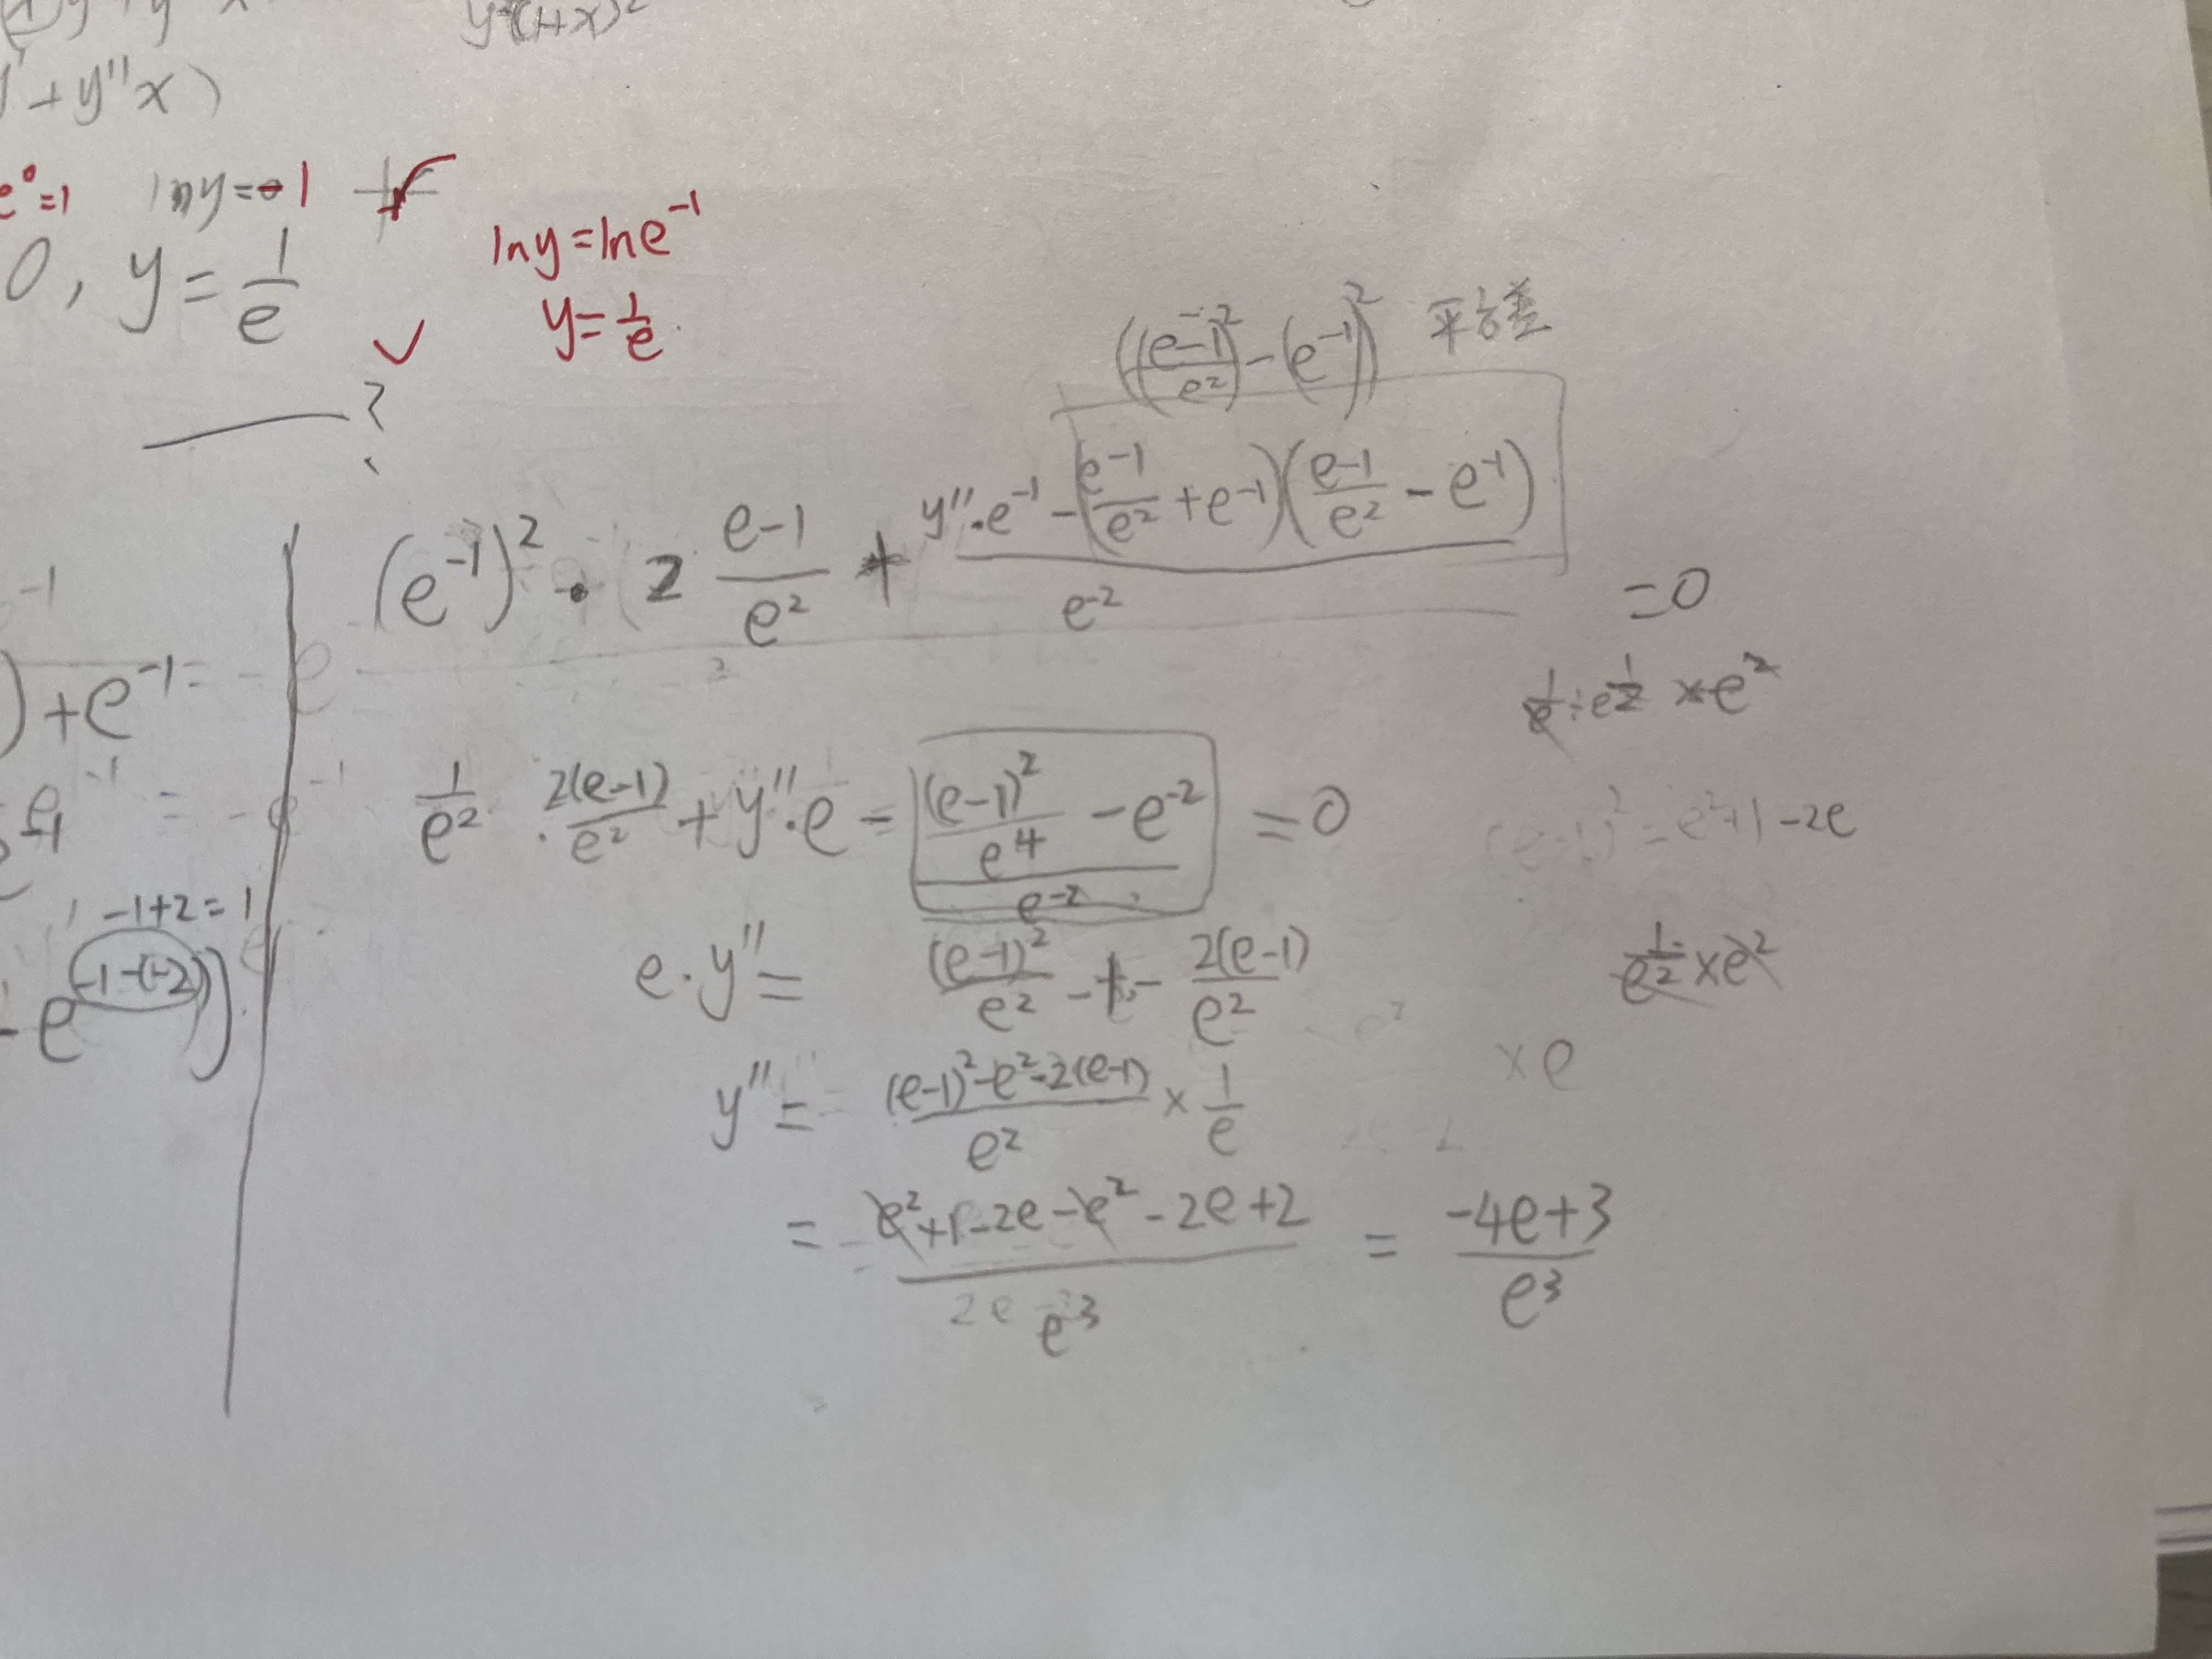 y²(1+x)²
+y''x)
e⁰=1 lny=-1
lny=lne⁻¹
0, y=1/e
y=1/e
?
((e-1/e²)²-(e⁻¹)²) 平方差
(e⁻¹)²·2 e-1/e² + (y''·e⁻¹-(e-1/e²+e⁻¹)(e-1/e²-e⁻¹))/e⁻² =0
)+e⁻¹=
×e²
1/e²·2(e-1)/e²+y''·e-((e-1)²/e⁴-e⁻²)/e⁻²=0
(e-1)²=e²+1-2e
-1+2=1
-e^(-1-(-2)))
e·y''=(e-1)²/e²-1-2(e-1)/e²
1/e²×e²
×e
y''=((e-1)²-e²-2(e-1))/e²×1/e
=(e²+1-2e-e²-2e+2)/e³=(-4e+3)/e³